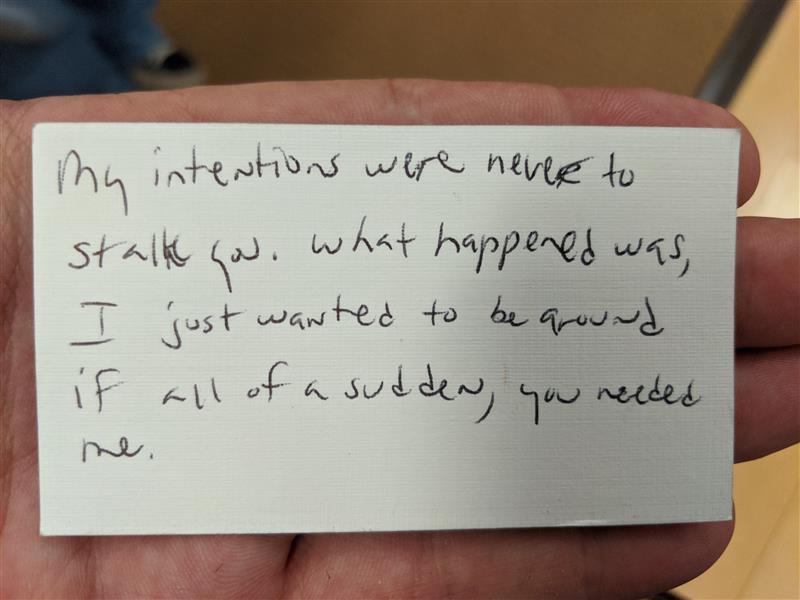 My intentions were never to
stalk you. What happened was,
I just wanted to be around
if all of a sudden, you needed
me.